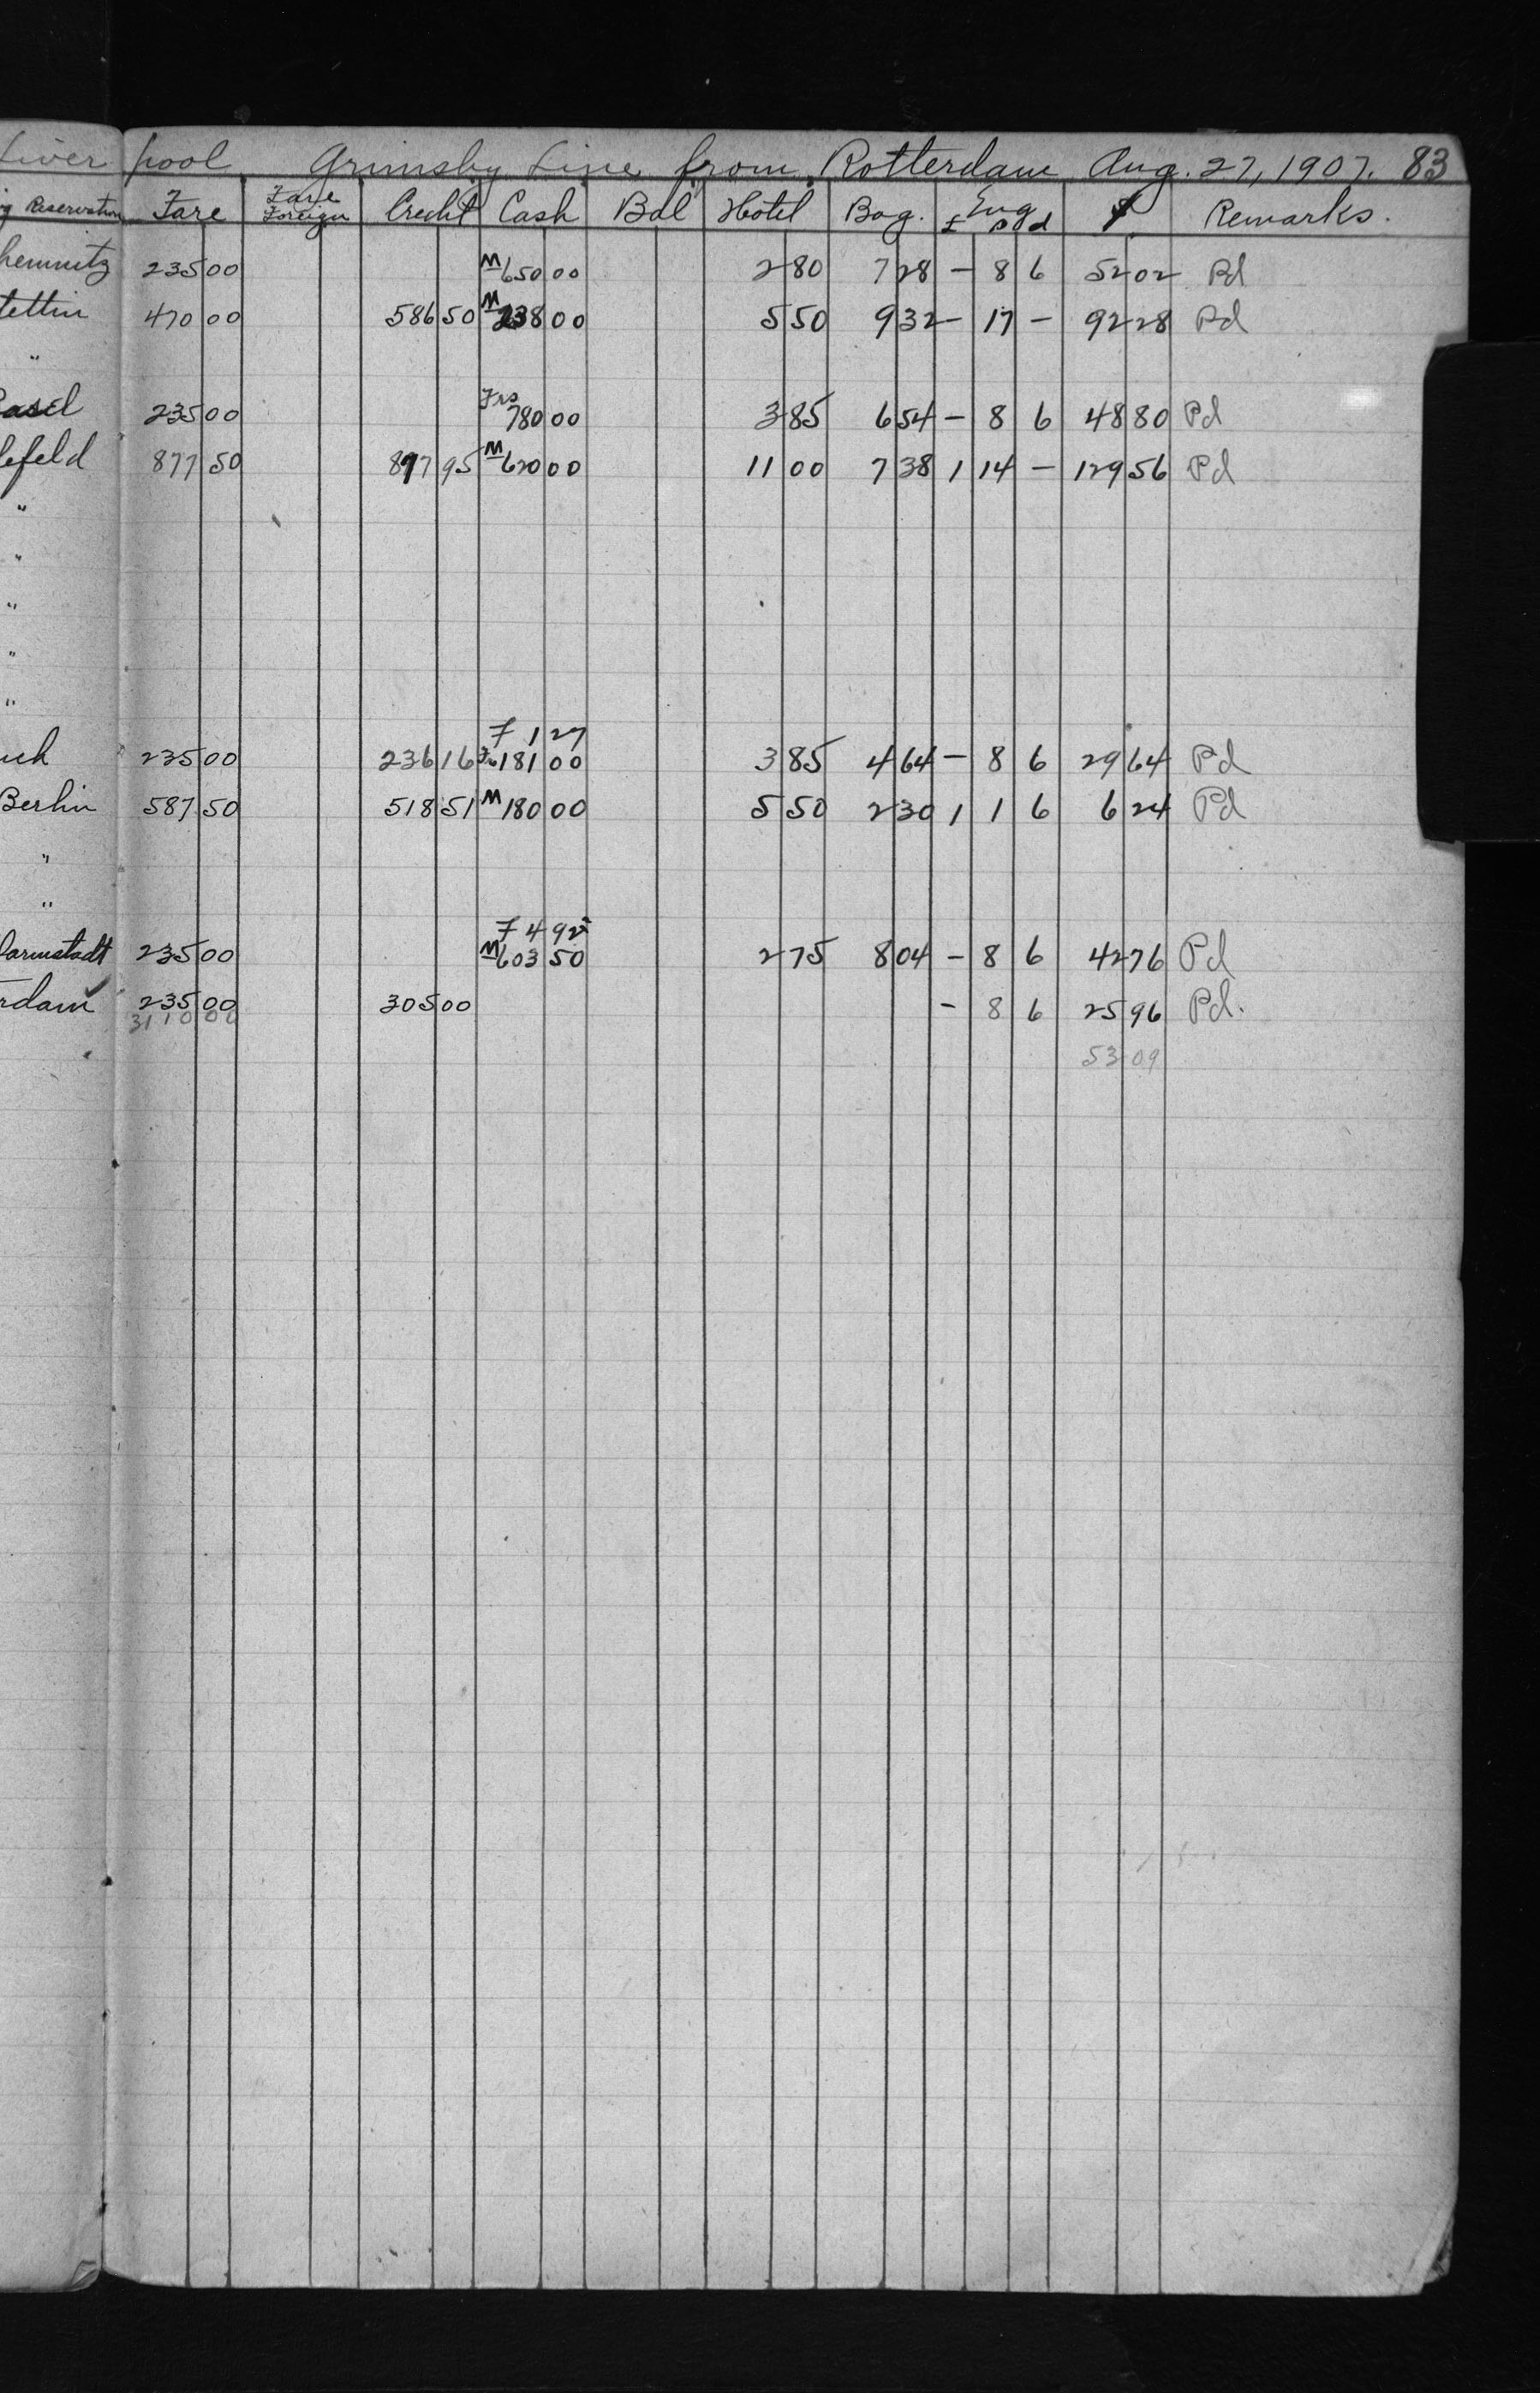 Liverpool Grimsby Line from Rotterdam Aug. 27, 1907. 83
g Reservation Fare Fare Foreign Credit Cash Bal Hotel Bag. Eng £ s d $ Remarks.
hemnitz 235 00 M 650 00 2 80 7 28 - 8 6 52 02 Pd
tettin 470 00 586 50 M 238 00 5 50 9 32 - 17 - 92 28 Pd
"
Basel 235 00 Frs 780 00 3 85 6 54 - 8 6 48 80 Pd
lefeld 877 50 897 95 M 620 00 11 00 7 38 1 14 - 129 56 Pd
"
"
"
"
"
F 1 27
ich 235 00 236 16 Fr 181 00 3 85 4 64 - 8 6 29 64 Pd
Berlin 587 50 518 51 M 180 00 5 50 2 30 1 1 6 6 24 Pd
"
"
F 4 92
Darmstadt 235 00 M 603 50 2 75 8 04 - 8 6 42 76 Pd
rdam 235 00 305 00 - 8 6 25 96 Pd.
3110 00
53 09